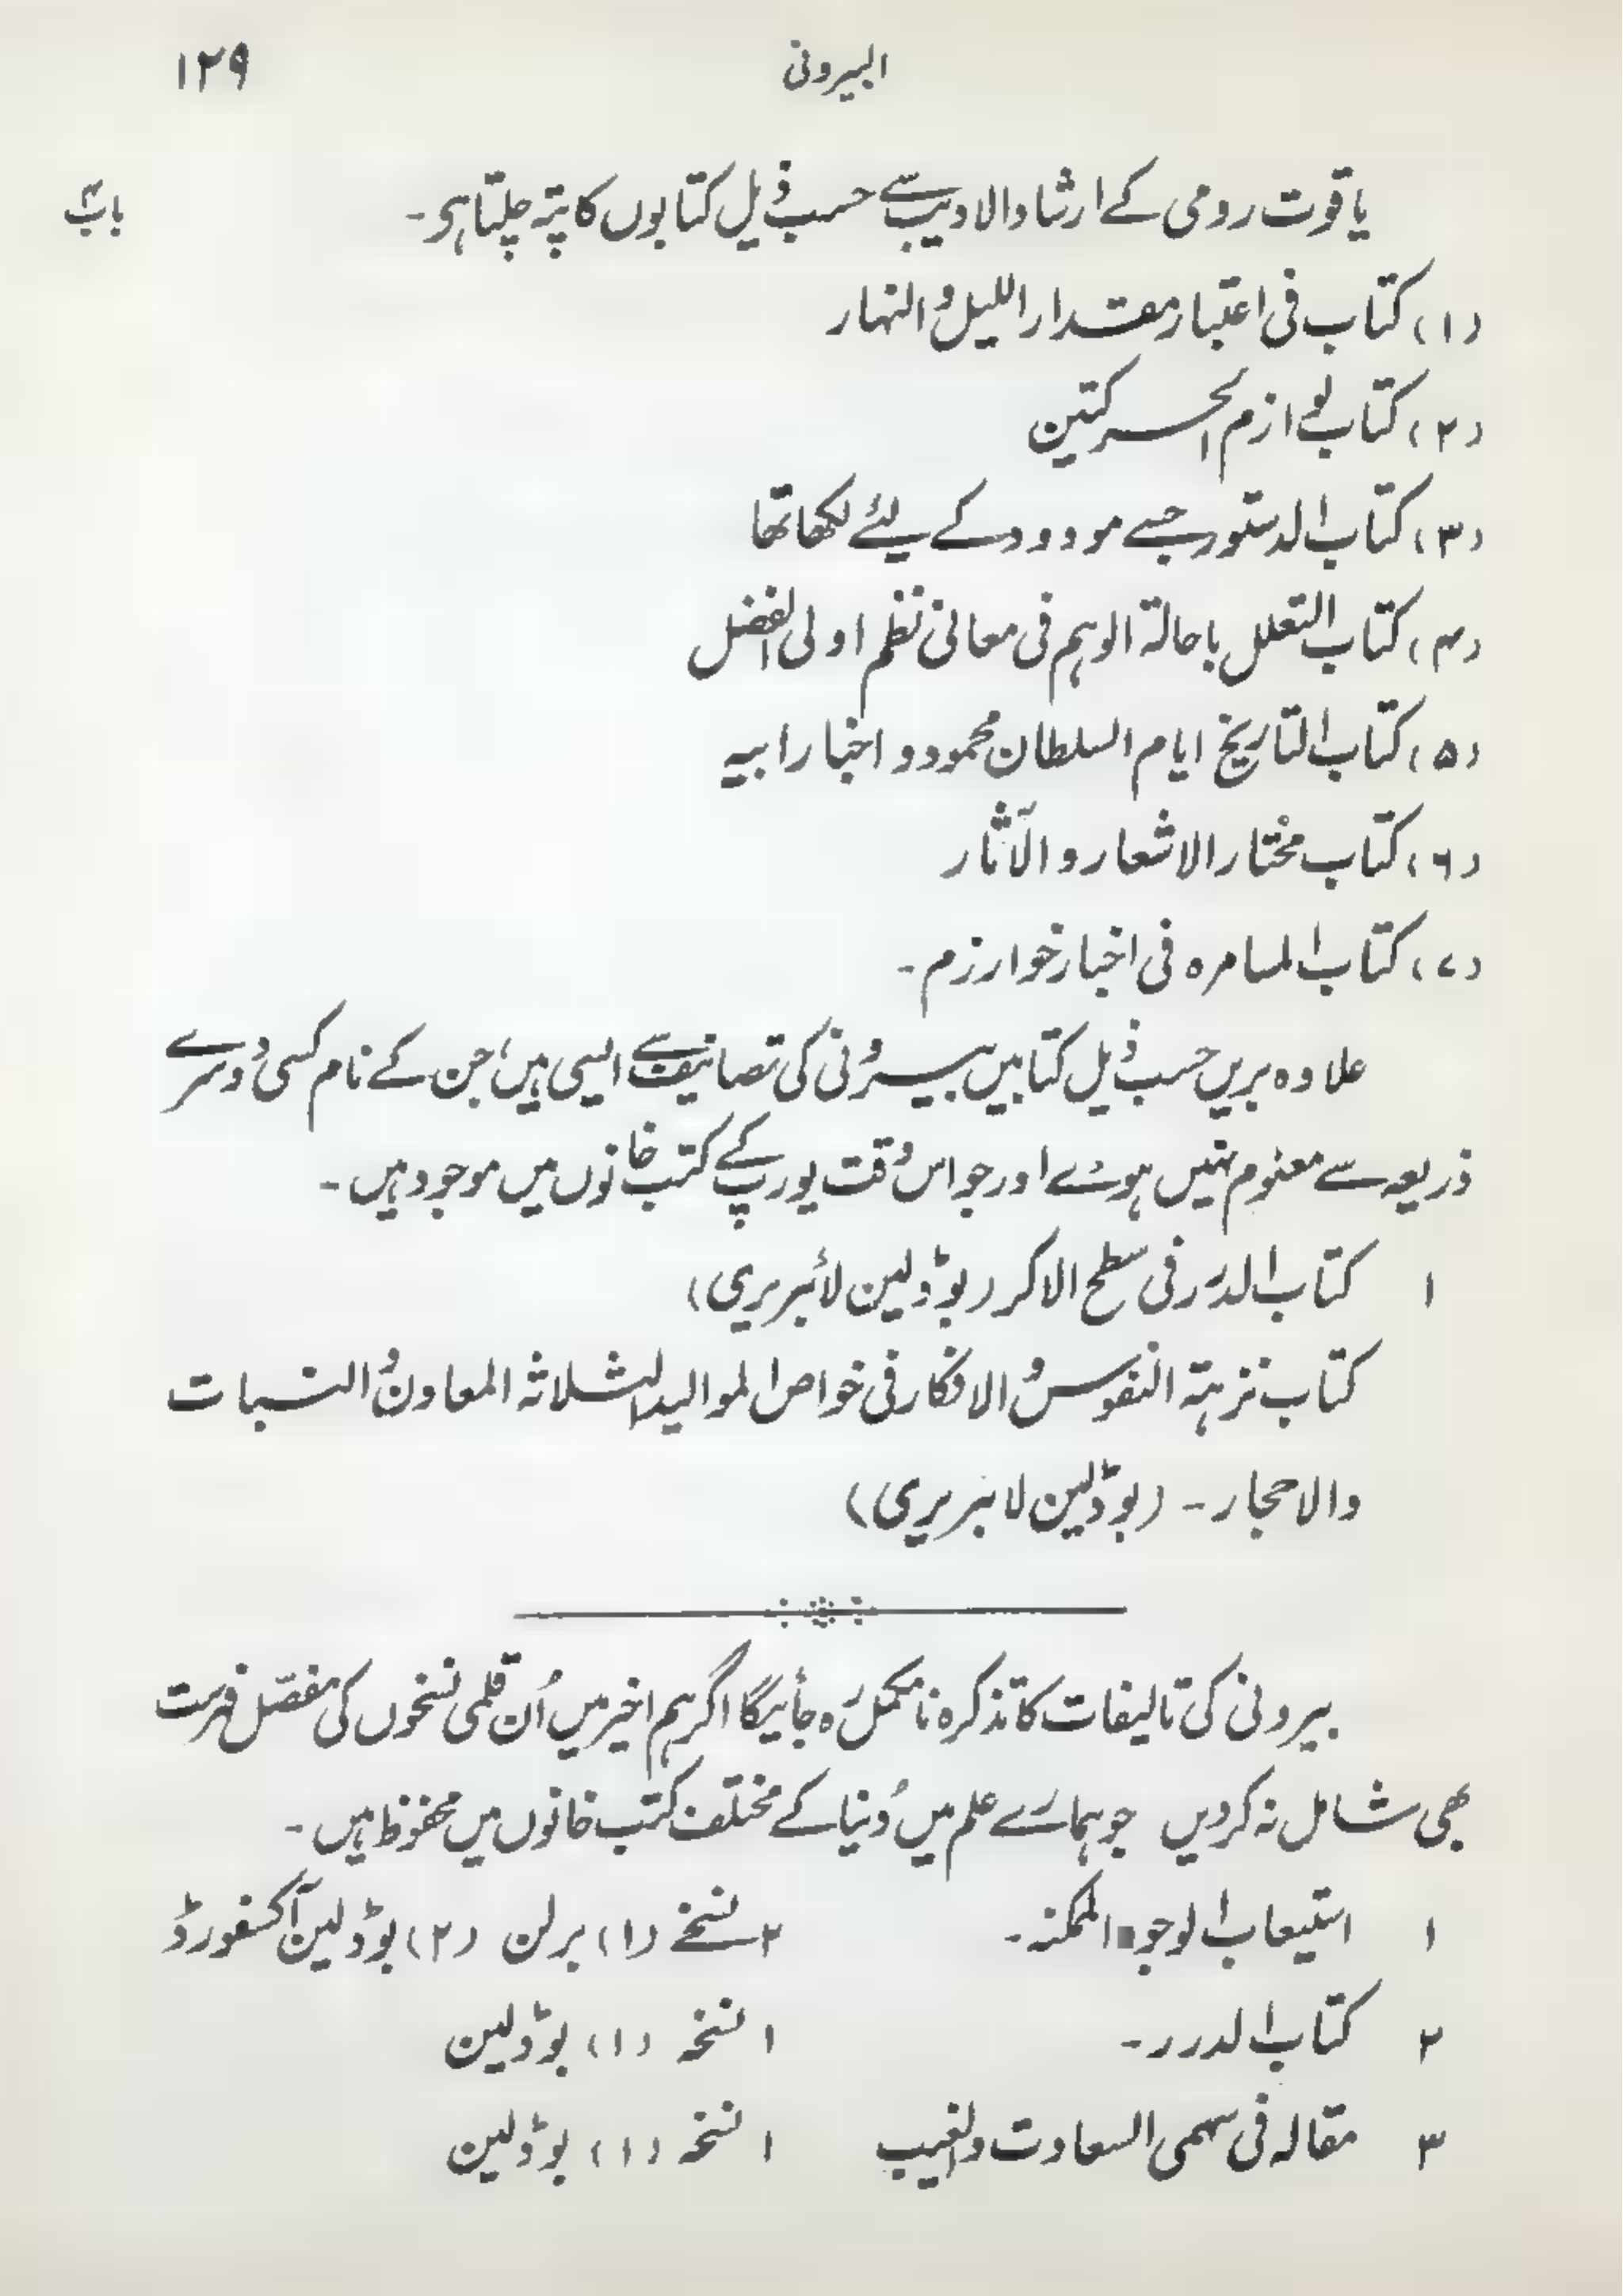 البیرونی ۱۲۹
باب۴
یاقوت رومی کے ارشاد الادیب سے حسب ذیل کتابوں کا پتہ چلتا ہی۔
(۱) کتاب فی اعتبار مقدار اللیل و النہار
(۲) کتاب لوازم الحرکتین
(۳) کتاب الدستور جسے مودود کے لیئے لکھا تھا
(۴) کتاب التعلل باحالۃ الوہم فی معانی نظم اولی الفضل
(۵) کتاب التاریخ ایام السلطان محمود و اخبار ابیہ
(۶) کتاب مختار الاشعار و الآثار
(۷) کتاب المسامرہ فی اخبار خوارزم۔
علاوہ بریں حسب ذیل کتابیں بیرونی کی تصانیف سے ایسی ہیں، جن کے نام کسی دوسرے
ذریعہ سے معلوم نہیں ہوئے اور جو اس وقت یورپ کے کتب خانوں میں موجود ہیں۔
۱ کتاب الدرر فی سطح الاکر (بوڈلین لائبریری)
کتاب نزہتہ النفوس و الافکار فی خواص الموالید الثلاثہ المعاون و النبات
والاحجار۔ (بوڈلین لائبریری)
بیرونی کی تالیفات کا تذکرہ نامکمل رہ جائیگا اگر ہم اخیر میں اُن قلمی نسخوں کی مفصّل فہرست
بھی شامل نہ کردیں جو ہمارے علم میں دُنیا کے مختلف کتب خانوں میں محفوظ ہیں۔
۱ استیعاب الوجو الممکنہ۔ ۲ نسخے (۱) برلن (۲) بوڈلین آکسفورڈ
۲ کتاب الدرر۔ ۱ نسخہ (۱) بوڈلین
۳ مقالہ فی سہمی السعادت والغیب ۱ نسخہ (۱) بوڈلین